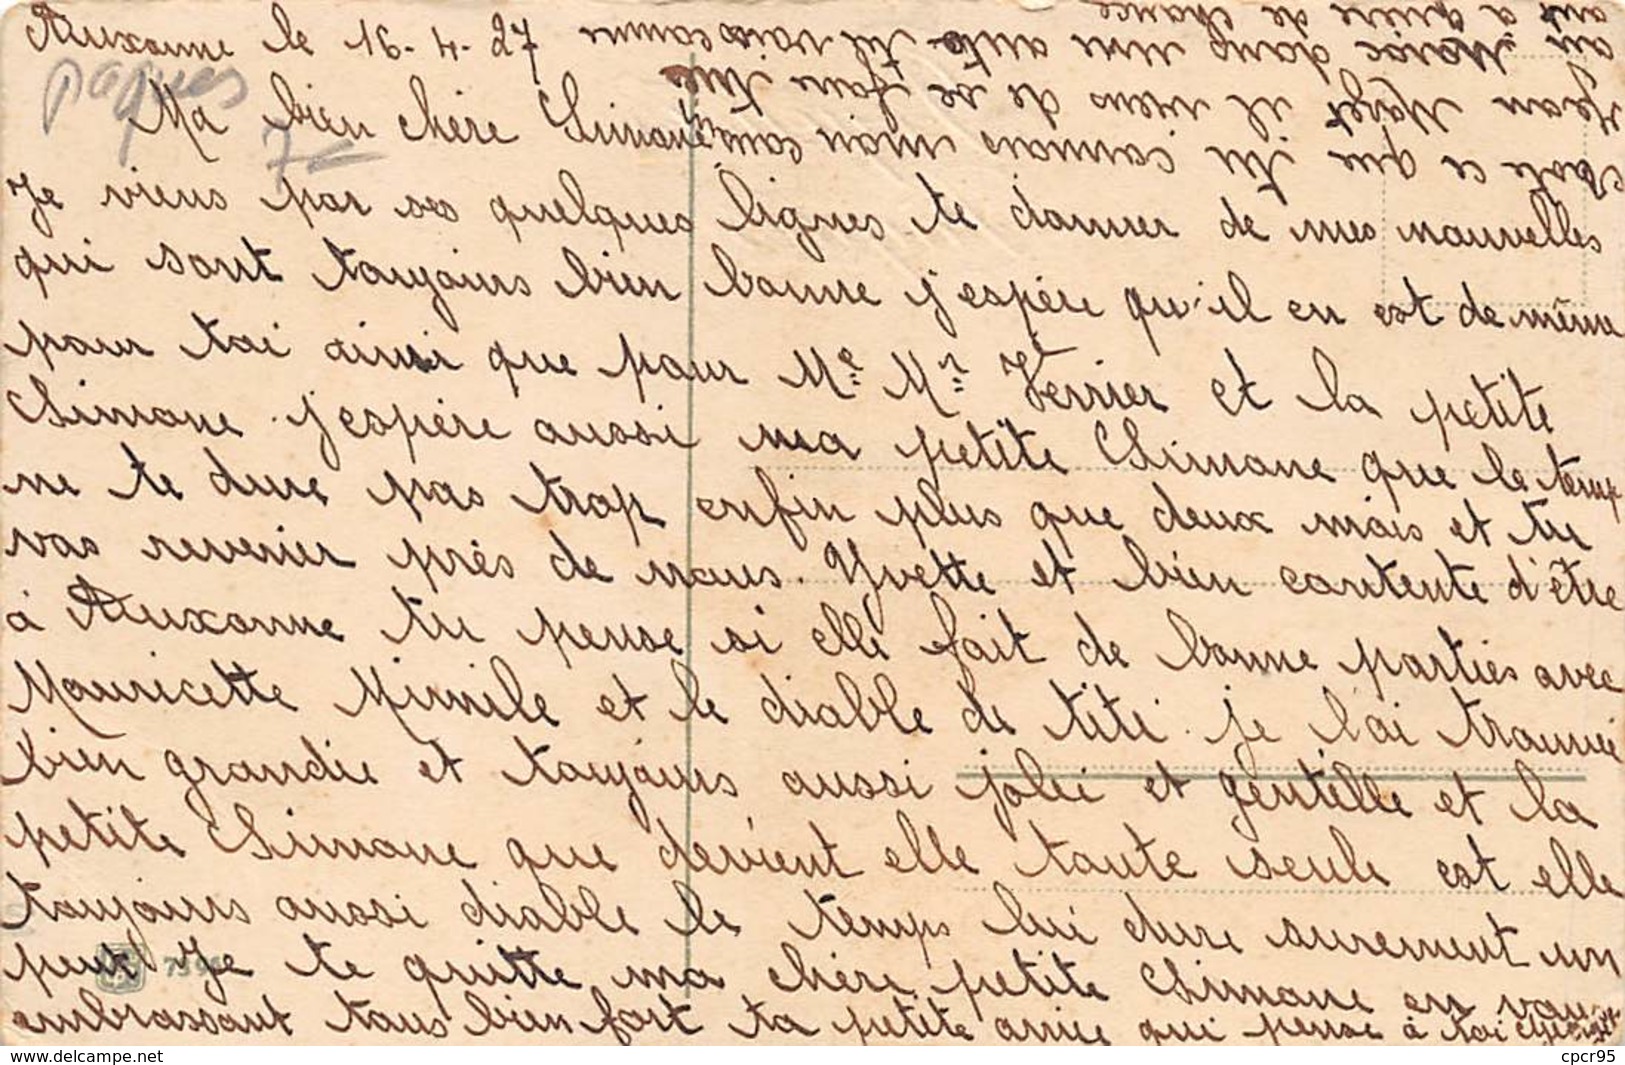 Auxonne le 16-4-27
paques
7
Ma bien chère Simone
Je viens par ses quelques lignes te donner de mes nouvelles
qui sont toujours bien bonne j'espère qu'il en est de même
pour toi ainsi que pour Me Mr Verrier et la petite
Simone j'espère aussi ma petite Simone que le temp
ne te dure pas trop enfin plus que deux mois et tu
vas revenier près de nous. Yvette et bien contente d'être
à Auxonne tu pense si elle fait de bonne parties avec
Mauricette Mimile et le diable de titi. je l'ai trouvée
bien grandie et toujours aussi jolie et gentille et la
petite Simone que devient elle toute seule est elle
toujours aussi diable le temps lui dure surement un
peux Je te quitte ma chère petite Simone en vous
embrassant tous bien fort ta petite amie qui pense à toi
ce que tu connais main
Jean il viens de se faire tuée
au Maroc dans une auto tu vois comme
ont a guère de chance
7396
cpcr95